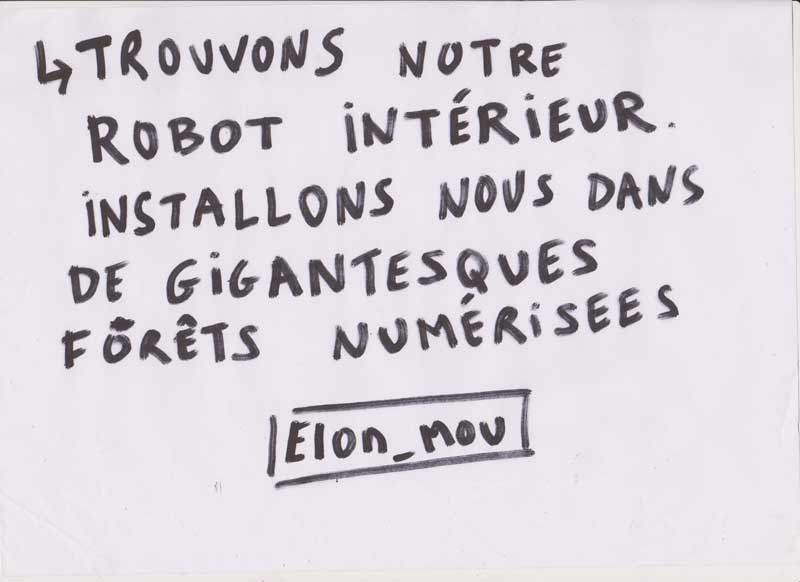 ↳ TROUVONS NOTRE
ROBOT INTÉRIEUR.
INSTALLONS NOUS DANS
DE GIGANTESQUES
FÔRÊTS NUMÉRISEES
Elon_mou